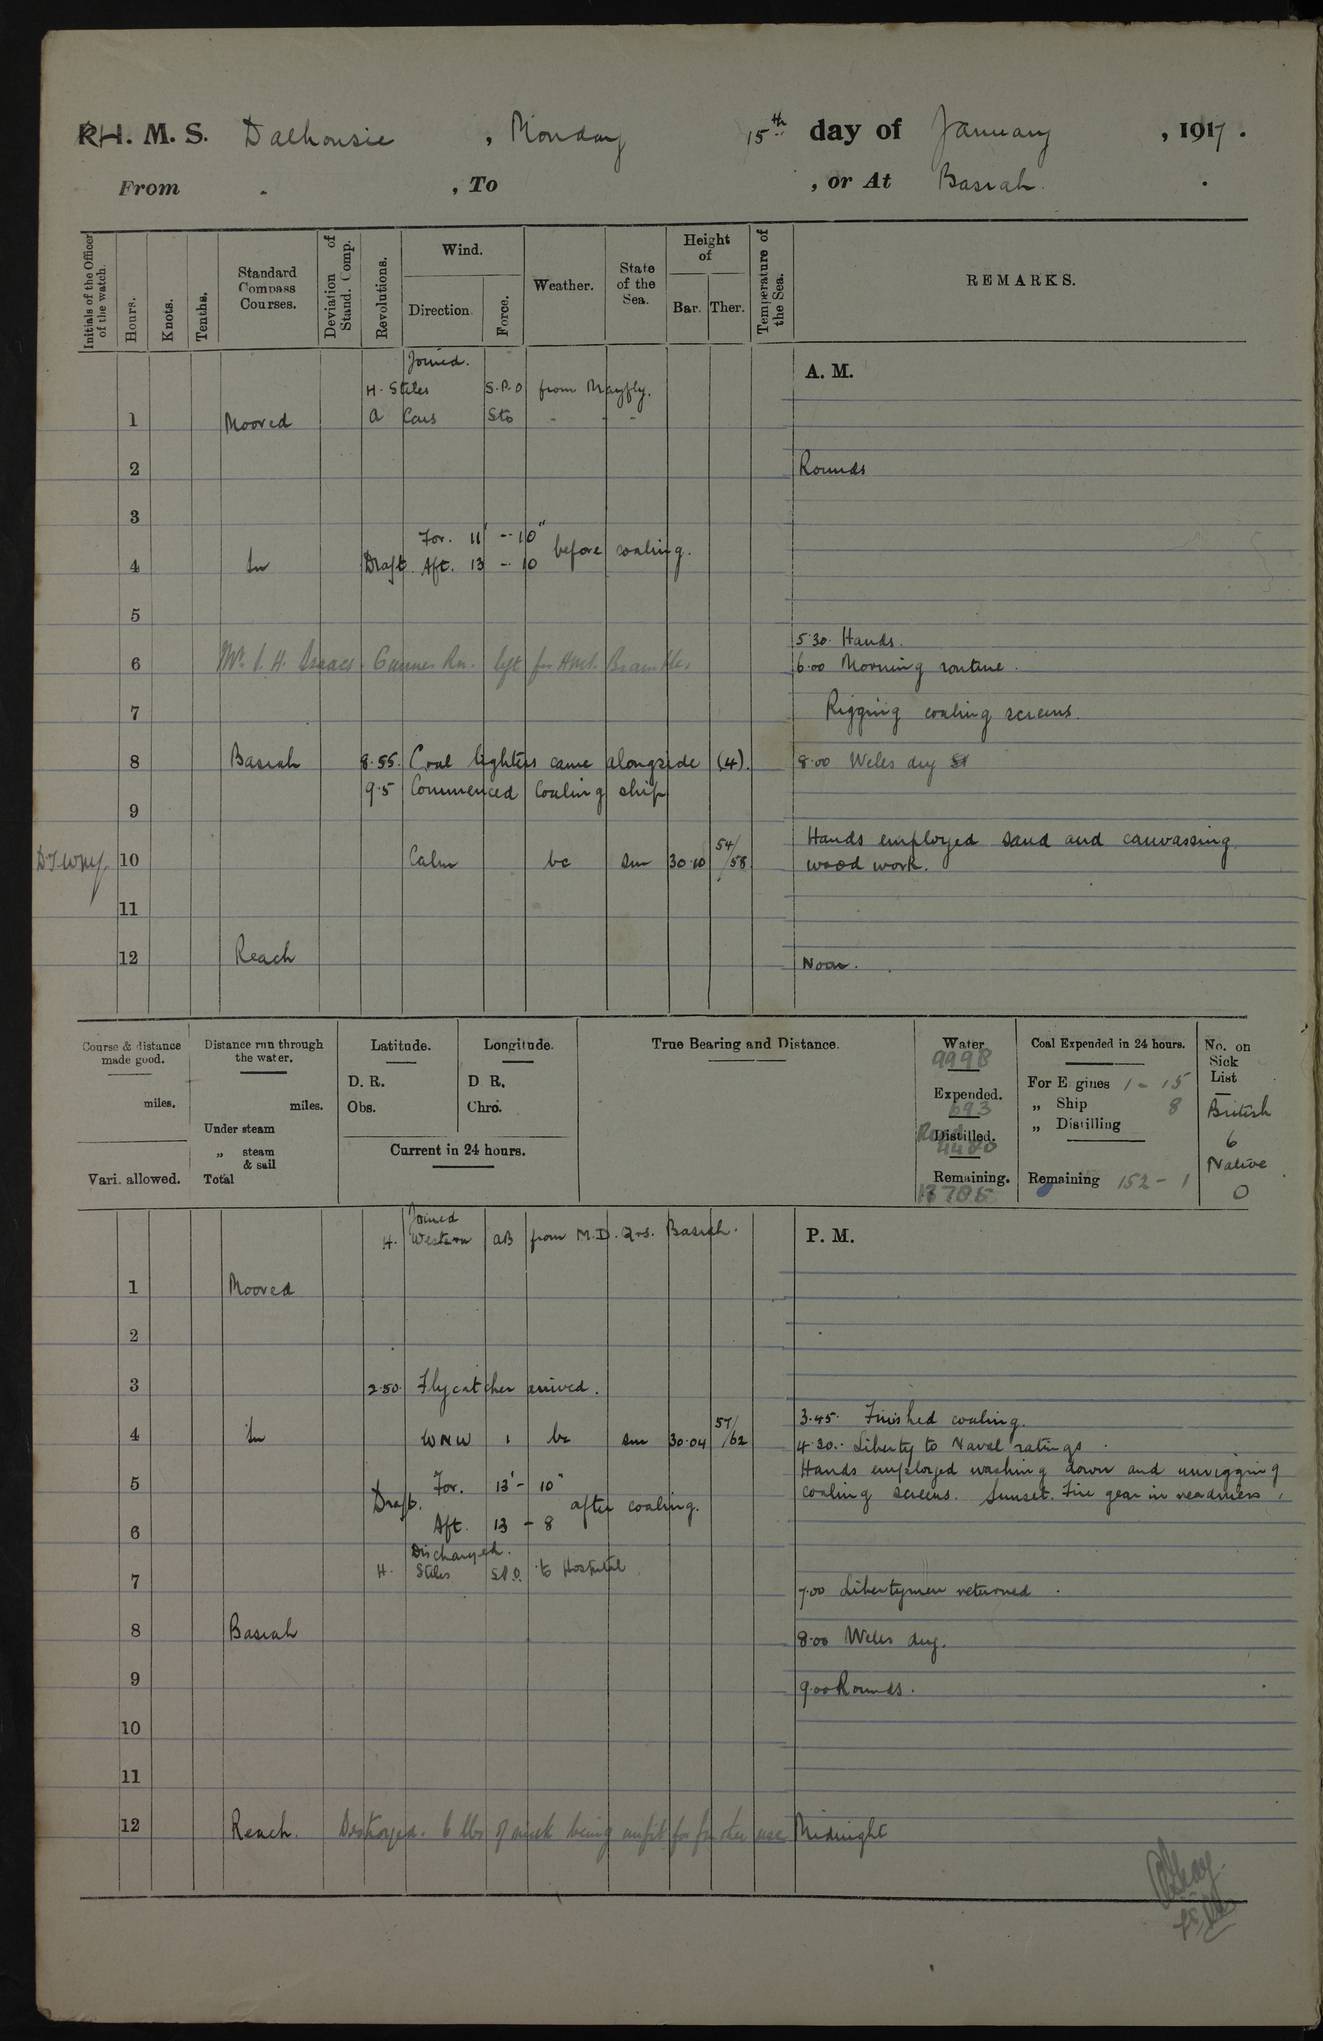 R H. M. S. Dalhousie, Monday 15th day of January, 1917.
From , To , or At Basrah.
Initials of the Officer of the watch.
Hours.
Knots.
Tenths.
Standard Compass Courses.
Deviation of Stand. Comp.
Revolutions.
Wind.
Direction.
Force.
Weather.
State of the Sea.
Height of
Bar.
Ther.
Temperature of the Sea.
REMARKS.
A. M.
Joined.
H. Stiles S.P.O from Mayfly.
1 Moored A Cars Sto - -
2 Rounds
3
For. 11' - 10"
before coaling.
4 In Draft. Aft. 13 - 10
5
5.30. Hands.
6 Mr. I. H. Isaacs. Gunner Rn. left for HMS. Bramble. 6.00 Morning routine.
7 Rigging coaling screens.
8 Basrah 8.55. Coal lighters came alongside (4). 8.00 Wells dry
9.5 Commenced Coaling ship
9
Hands employed sand and canvassing
10 Calm bc sm 30.10 54/58 wood work.
11
12 Reach Noon.
Course & distance made good.
miles.
Vari. allowed.
Distance run through the water.
miles.
Under steam
„ steam & sail
Total
Latitude.
D. R.
Obs.
Longitude.
D R.
Chro.
Current in 24 hours.
True Bearing and Distance.
Water
9998
Expended.
693
Distilled.
Recd
4480
Remaining.
13785
Coal Expended in 24 hours.
For Engines 1 - 15
„ Ship 8
„ Distilling
Remaining 152 - 1
No. on Sick List
British
6
Native
0
P. M.
Joined
H. Western AB from M.D. Qrs. Basrah.
1 Moored
2
3 2.50. Flycatcher arrived.
3.45. Finished coaling.
4 In WNW 1 bc sm 30.04 57/62 4.30. Liberty to Naval ratings.
Hands employed washing down and unrigging
5 For. 13' - 10" coaling screens. Sunset. Fire gear in readiness.
Draft. after coaling.
6 Aft. 13 - 8
Discharged.
H. Stiles S.P.O. to Hospital.
7
7.00 Libertymen returned.
8 Basrah 8.00 Wells dry.
9 9.00 Rounds.
10
11
12 Reach. Destroyed. 6 lbs of being unfit for further use Midnight